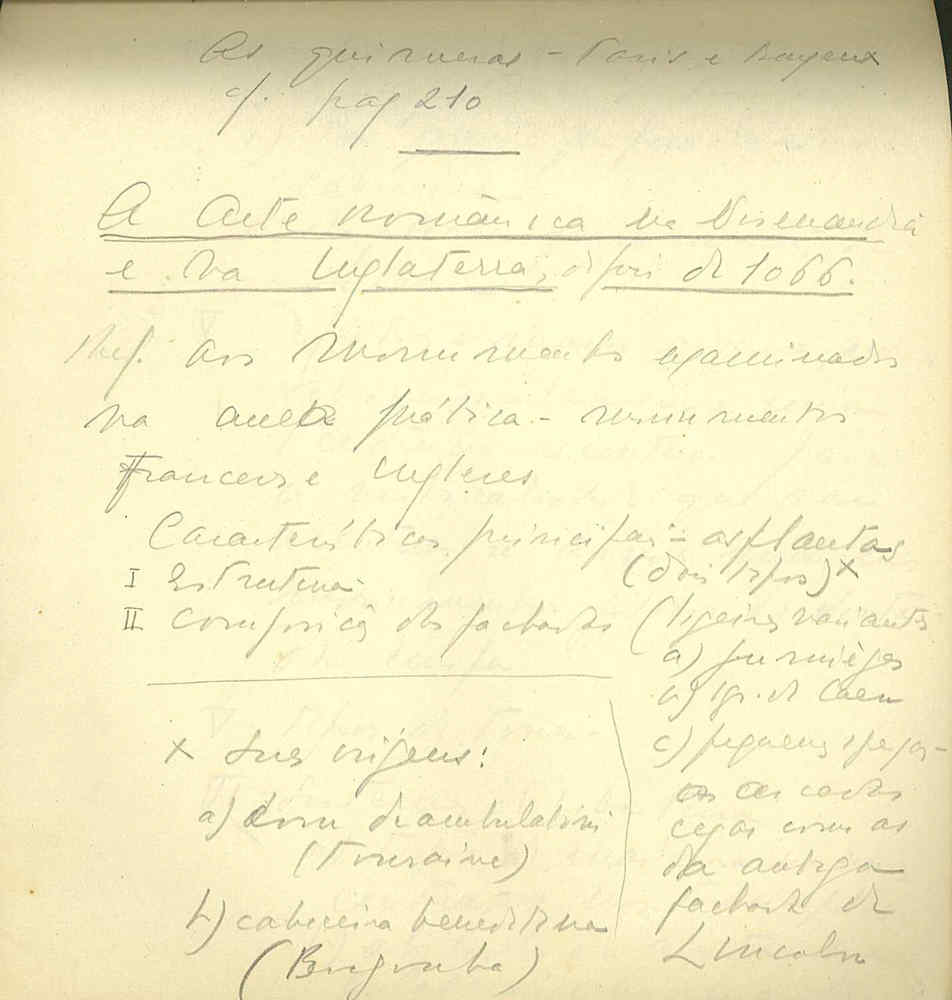 As quimeras - Paris e Bayeux
cf. pag 210
A Arte românica na Normandia
e na Inglaterra, depois de 1066.
Ref. aos monumentos examinados
na aula prática - monumentos
Franceses e Ingleses
Características principais - as plantas
I Estrutura (dois tipos) x
II composição das fachadas (ligeiras variantes
a) Jumièges
b) igr. de Caen
c) pequenas igrejas -
as arcadas
cegas como as
da antiga
fachada de
Lincoln
x Suas origens:
a) com deambulatório
(Touraine)
b) cabeceira beneditina
(Borgonha)